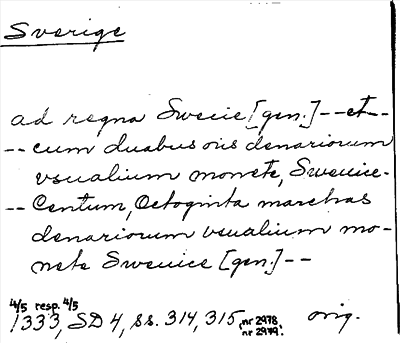 Sverige
ad regna Swecie [gen.] -- et --
-- cum duabus oris denariorum
vsualium monete, Swecice -
-- Centum, Octoginta marchas
denariorum vsualium mo-
nete Swecice [gen.] --
4/5 resp. 4/5
1333, SD 4, ss. 314, 315, nr 2978, orig.
nr 2979.